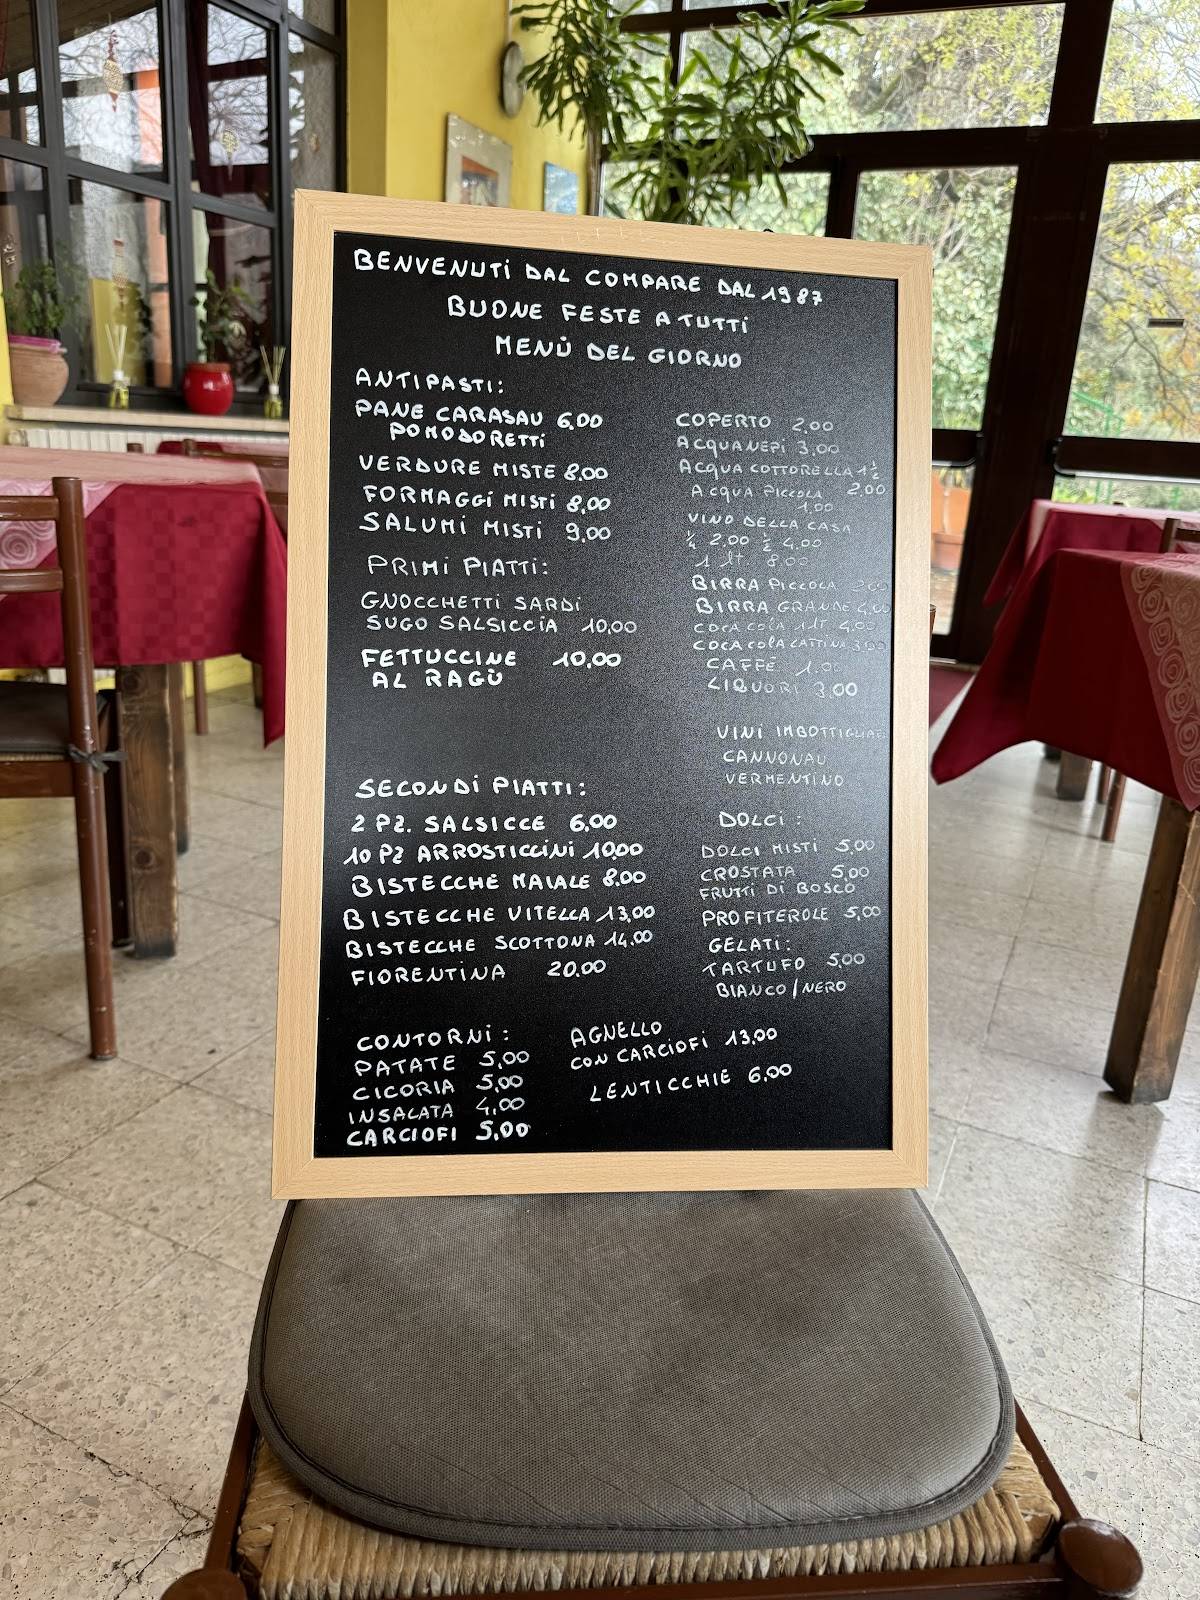 BENVENUTI DAL COMPARE DAL 1987
BUONE FESTE A TUTTI
MENÙ DEL GIORNO
ANTIPASTI:
PANE CARASAU 6,00
POMODORETTI
VERDURE MISTE 8,00
FORMAGGI MISTI 8,00
SALUMI MISTI 9,00
PRIMI PIATTI:
GNOCCHETTI SARDI
SUGO SALSICCIA 10,00
FETTUCCINE 10,00
AL RAGÙ
SECONDI PIATTI:
2 PZ. SALSICCE 6,00
10 PZ ARROSTICCINI 10,00
BISTECCHE MAIALE 8,00
BISTECCHE VITELLA 13,00
BISTECCHE SCOTTONA 14,00
FIORENTINA 20,00
CONTORNI:
PATATE 5,00
CICORIA 5,00
INSALATA 4,00
CARCIOFI 5,00
COPERTO 2,00
ACQUA NEPI 3,00
ACQUA COTTORELLA 1 ½
2,00
ACQUA PICCOLA
1,00
VINO DELLA CASA
¼ 2,00 ½ 4,00
1 lt. 8,00
BIRRA PICCOLA
BIRRA GRANDE 4,00
COCA COLA 1 LT 4,00
COCA COLA LATTINA 3,00
CAFFÈ 1,00
LIQUORI 3,00
VINI IMBOTTIGLIATI
CANNONAU
VERMENTINO
DOLCI:
DOLCI MISTI 5,00
CROSTATA 5,00
FRUTTI DI BOSCO
PROFITEROLE 5,00
GELATI:
TARTUFO 5,00
BIANCO/NERO
AGNELLO
CON CARCIOFI 13,00
LENTICCHIE 6,00